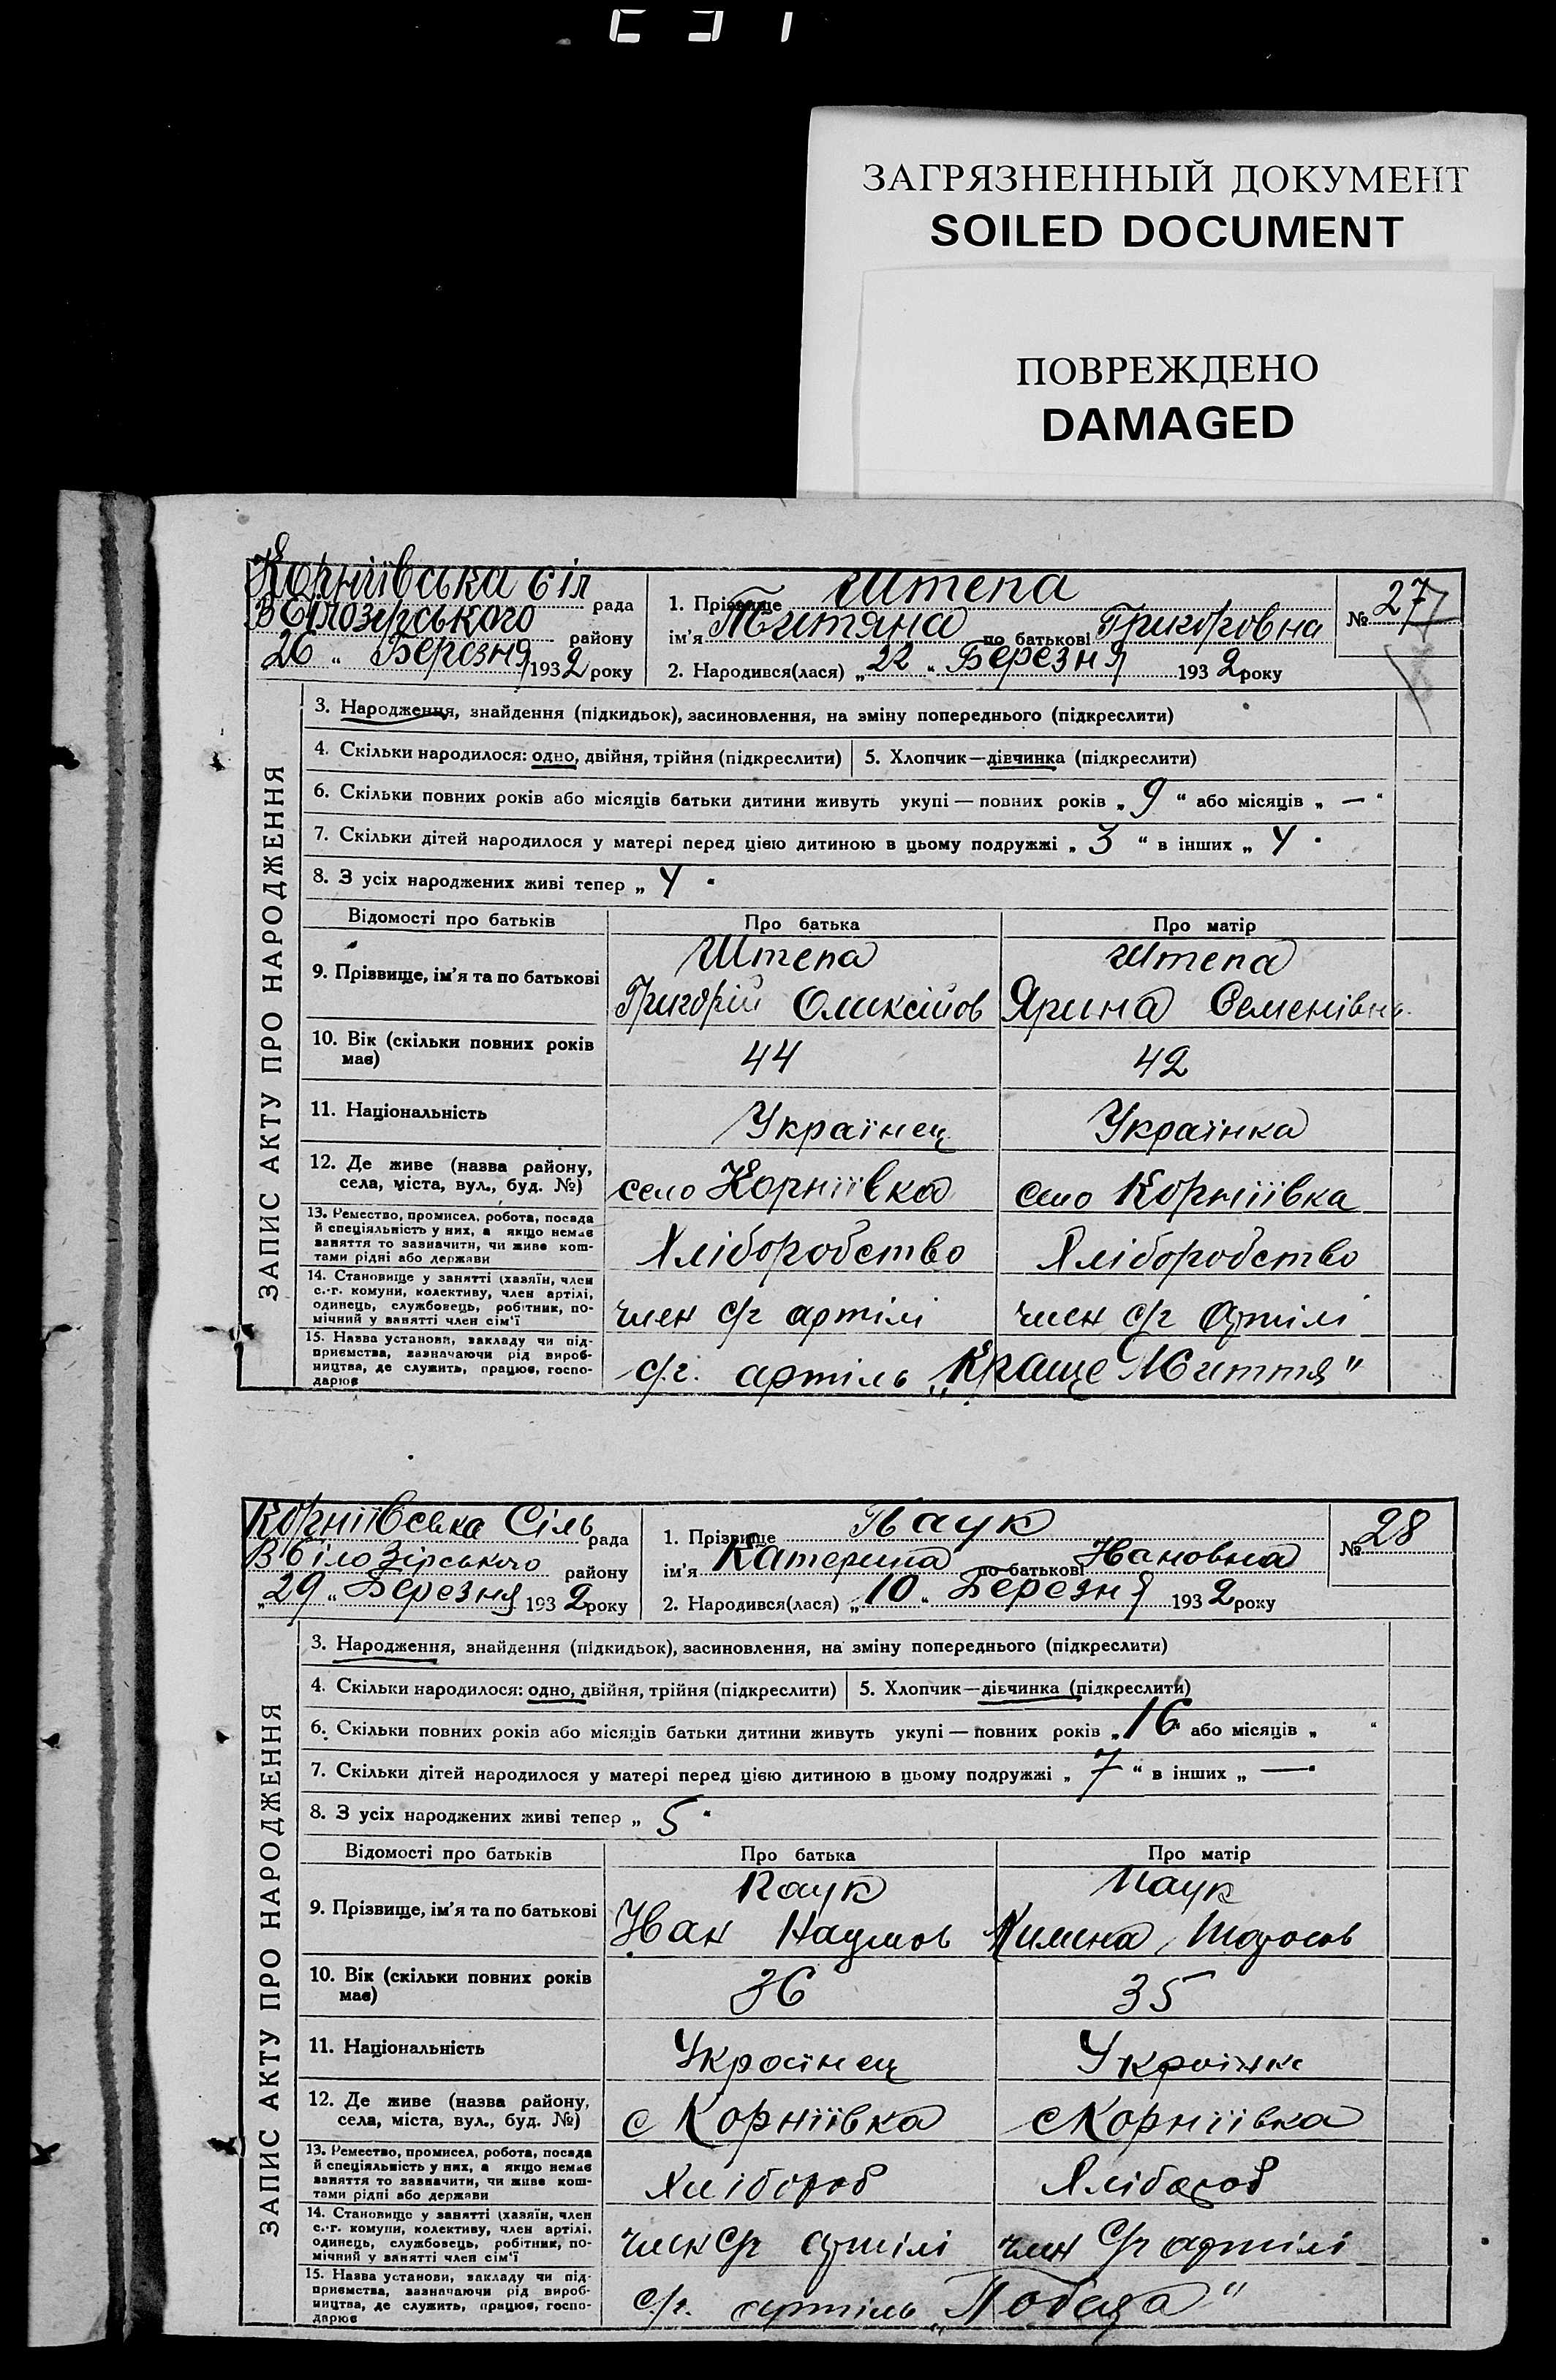 ЗАГРЯЗНЕННЫЙ ДОКУМЕНТ
SOILED DOCUMENT
ПОВРЕЖДЕНО
DAMAGED
ЗАПИС АКТУ ПРО НАРОДЖЕННЯ
Корніївська сіл рада
В Білозірського району
26 „ Березня 1932 року
1. Прізвище Штепа
ім'я Титяна по батькові Григоровна
2. Народився(лася) „ 22 “ Березня 1932 року
№ 27
3. Народження, знайдення (підкидьок), засиновлення, на зміну попереднього (підкреслити)
4. Скільки народилося: одно, двійня, трійня (підкреслити)
5. Хлопчик—дівчинка (підкреслити)
6. Скільки повних років або місяців батьки дитини живуть укупі — повних років „ 9 “ або місяців „ — “
7. Скільки дітей народилося у матері перед цією дитиною в цьому подружжі „ 3 “ в інших „ 4 “
8. З усіх народжених живі тепер „ 4 “
Відомості про батьків Про батька Про матір
9. Прізвище, ім'я та по батькові
Штепа Штепа
Григорій Оликсійов Ярина Семенівна
10. Вік (скільки повних років має) 44 42
11. Національність Українец Українка
12. Де живе (назва району, села, міста, вул., буд. №) село Корніївка село Корніївка
13. Ремество, промисел, робота, посада й спеціяльність у них, а якщо немає заняття то зазначити, чи живе коштами рідні або держави
Хліборобство Хліборобство
14. Становище у занятті (хазяїн, член с.-г. комуни, колективу, член артілі, одинець, службовець, робітник, помічний у занятті член сім'ї
член с/г артілі член с/г артілі
15. Назва установи, закладу чи підприємства, зазначаючи рід виробництва, де служить, працює, господарює
с/г. артіль „Краще Життя“
ЗАПИС АКТУ ПРО НАРОДЖЕННЯ
Корніївська Сіль рада
В Білозірського району
„29“ Березня 1932 року
1. Прізвище Паук
ім'я Катерина по батькові Ивановна
2. Народився(лася) „ 10 “ Березня 1932 року
№ 28
3. Народження, знайдення (підкидьок), засиновлення, на зміну попереднього (підкреслити)
4. Скільки народилося: одно, двійня, трійня (підкреслити)
5. Хлопчик—дівчинка (підкреслити)
6. Скільки повних років або місяців батьки дитини живуть укупі — повних років „ 16 “ або місяців „ “
7. Скільки дітей народилося у матері перед цією дитиною в цьому подружжі „ 7 “ в інших „ — “
8. З усіх народжених живі тепер „ 5 “
Відомості про батьків Про батька Про матір
9. Прізвище, ім'я та по батькові
Паук Паук
Иван Наумов
10. Вік (скільки повних років має) 36 35
11. Національність Українец Українка
12. Де живе (назва району, села, міста, вул., буд. №) с Корніївка с Корніївка
13. Ремество, промисел, робота, посада й спеціяльність у них, а якщо немає заняття то зазначити, чи живе коштами рідні або держави
Хлібороб Хлібороб
14. Становище у занятті (хазяїн, член с.-г. комуни, колективу, член артілі, одинець, службовець, робітник, помічний у занятті член сім'ї
член с/г артілі член с/г артілі
15. Назва установи, закладу чи підприємства, зазначаючи рід виробництва, де служить, працює, господарює
с/г. артіль „Победа“